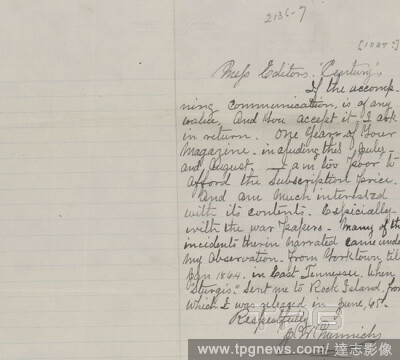 2136-7
[1887?]
Mess Editors. Century's
If the accomp-
ning communication, is of any
value, and You accept it I ask
in return. One Years of Your
Magazine. including this July-
and August. I am too Poor to
afford the Subscription Price.
And am Much interested
with its contents. Espicially
with the war Papers. Many of the
incidents therin narrated came under
my observation. From Yorktown till
Jan 1864. in East Tennessee. When
"Sturgis" Sent me to Rock Island, from
which I was released in June, 65.
Respectfully
www.tpgnews.com / 達志影像